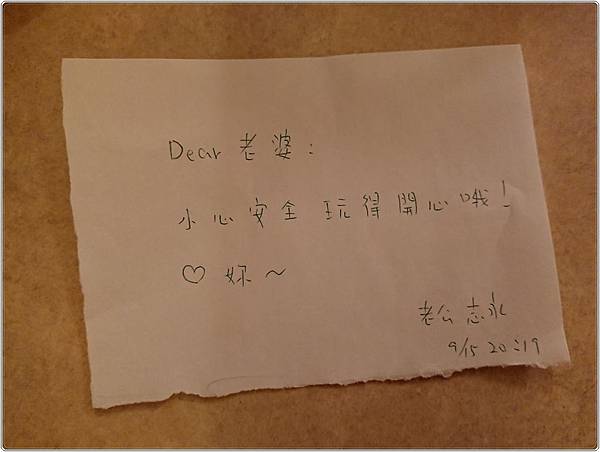 Dear 老婆：
小心安全 玩得開心哦！
♡ 妳～
老公 志永
9/15 20:19